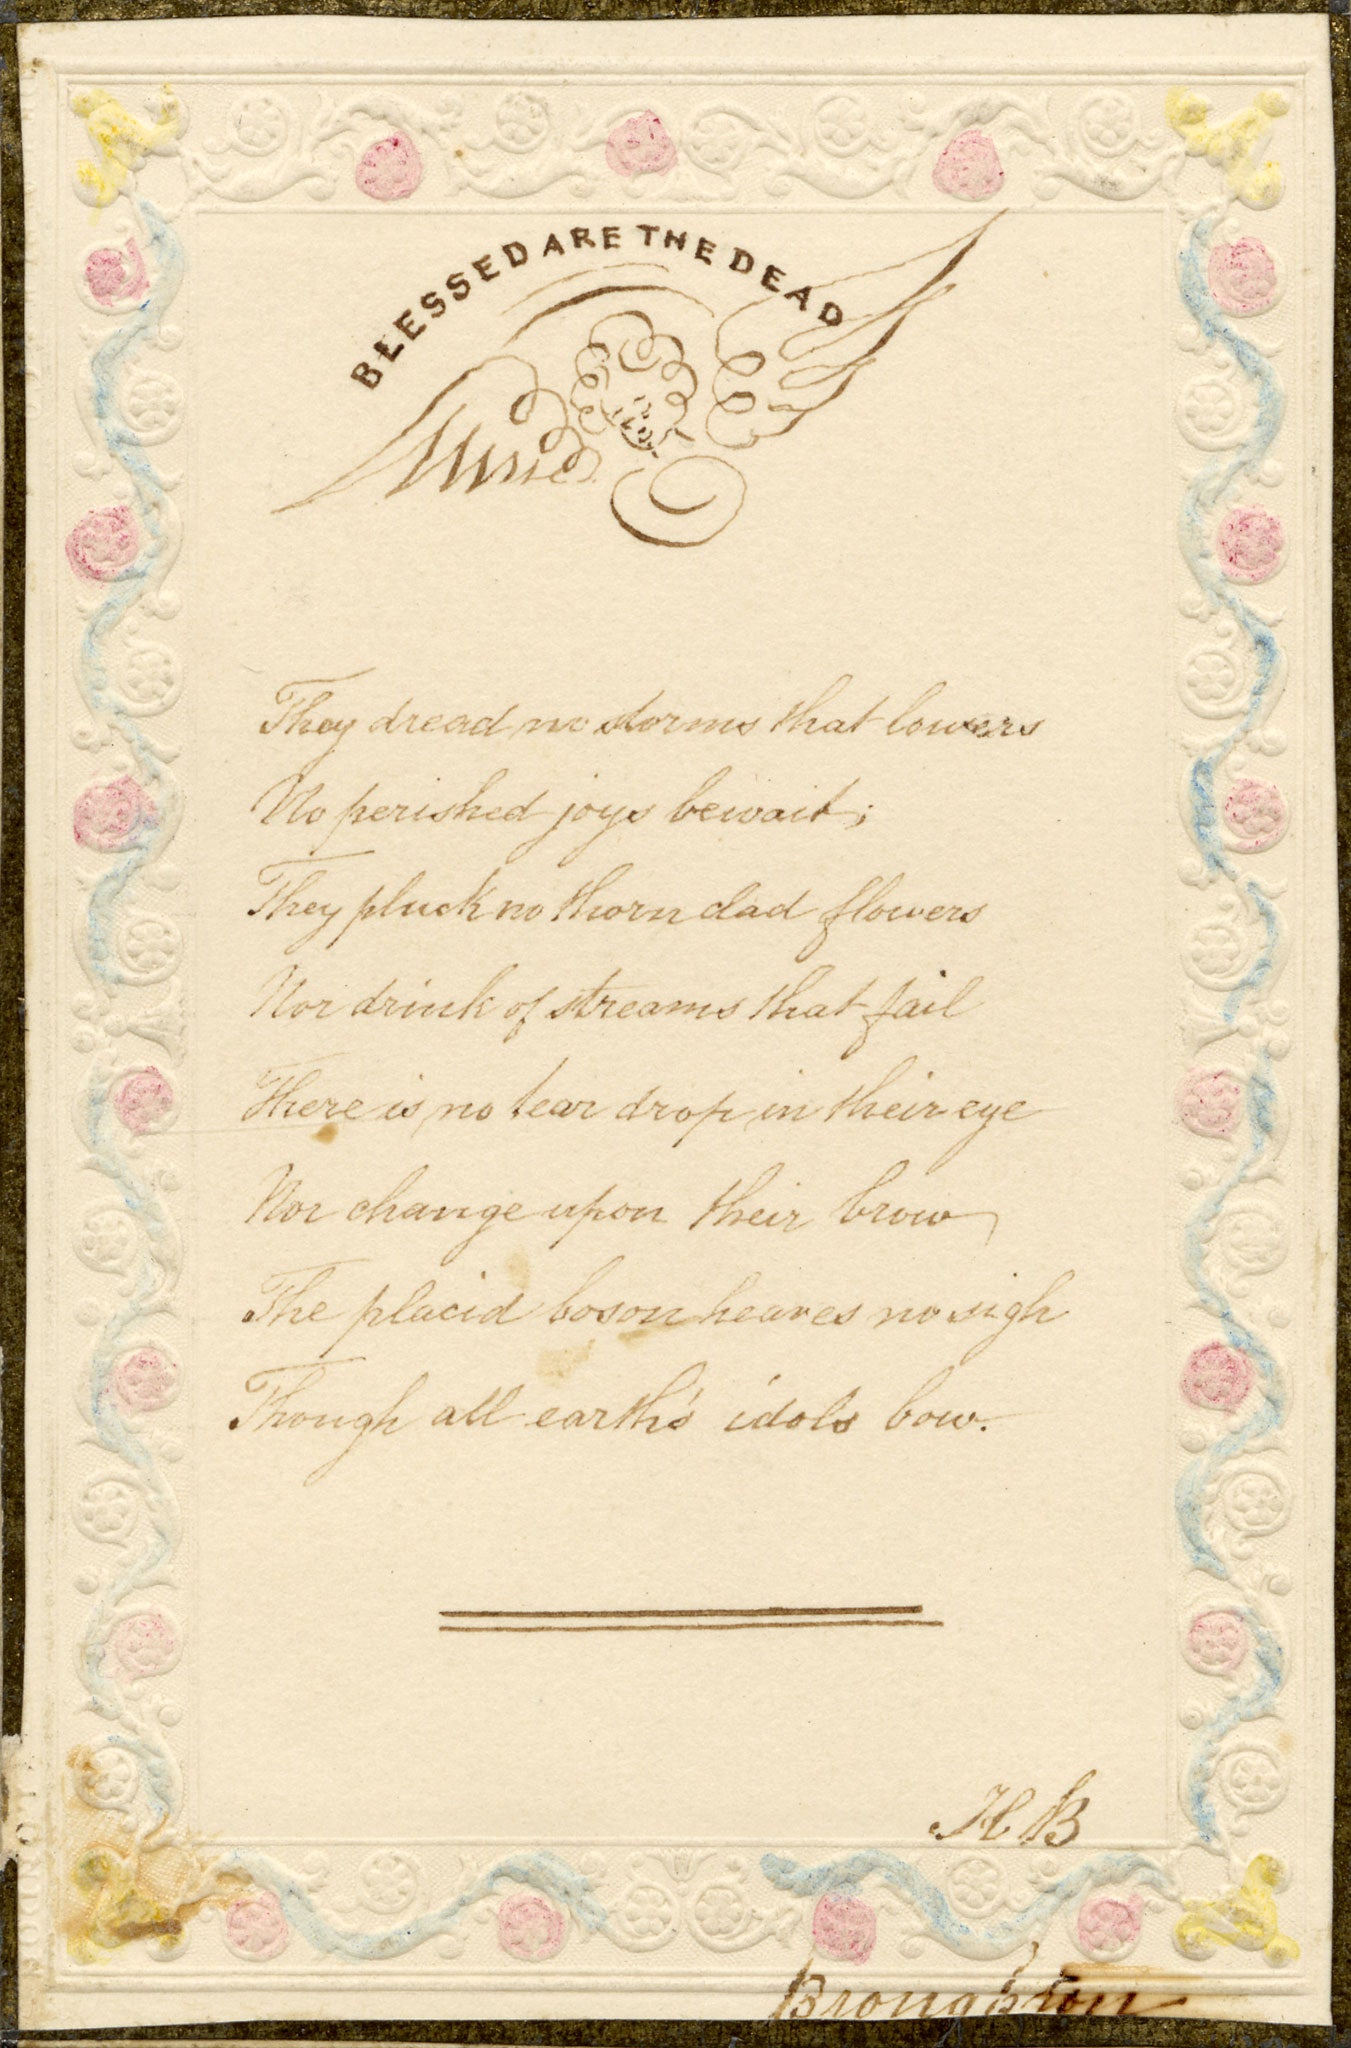 BLESSED ARE THE DEAD
They dread no storms that lowers
No perished joys bewait;
They pluck no thorn clad flowers
Nor drink of streams that fail
There is no tear drop in their eye
Nor change upon their brow
The placid boson heaves no sigh
Though all earth's idols bow.
H B